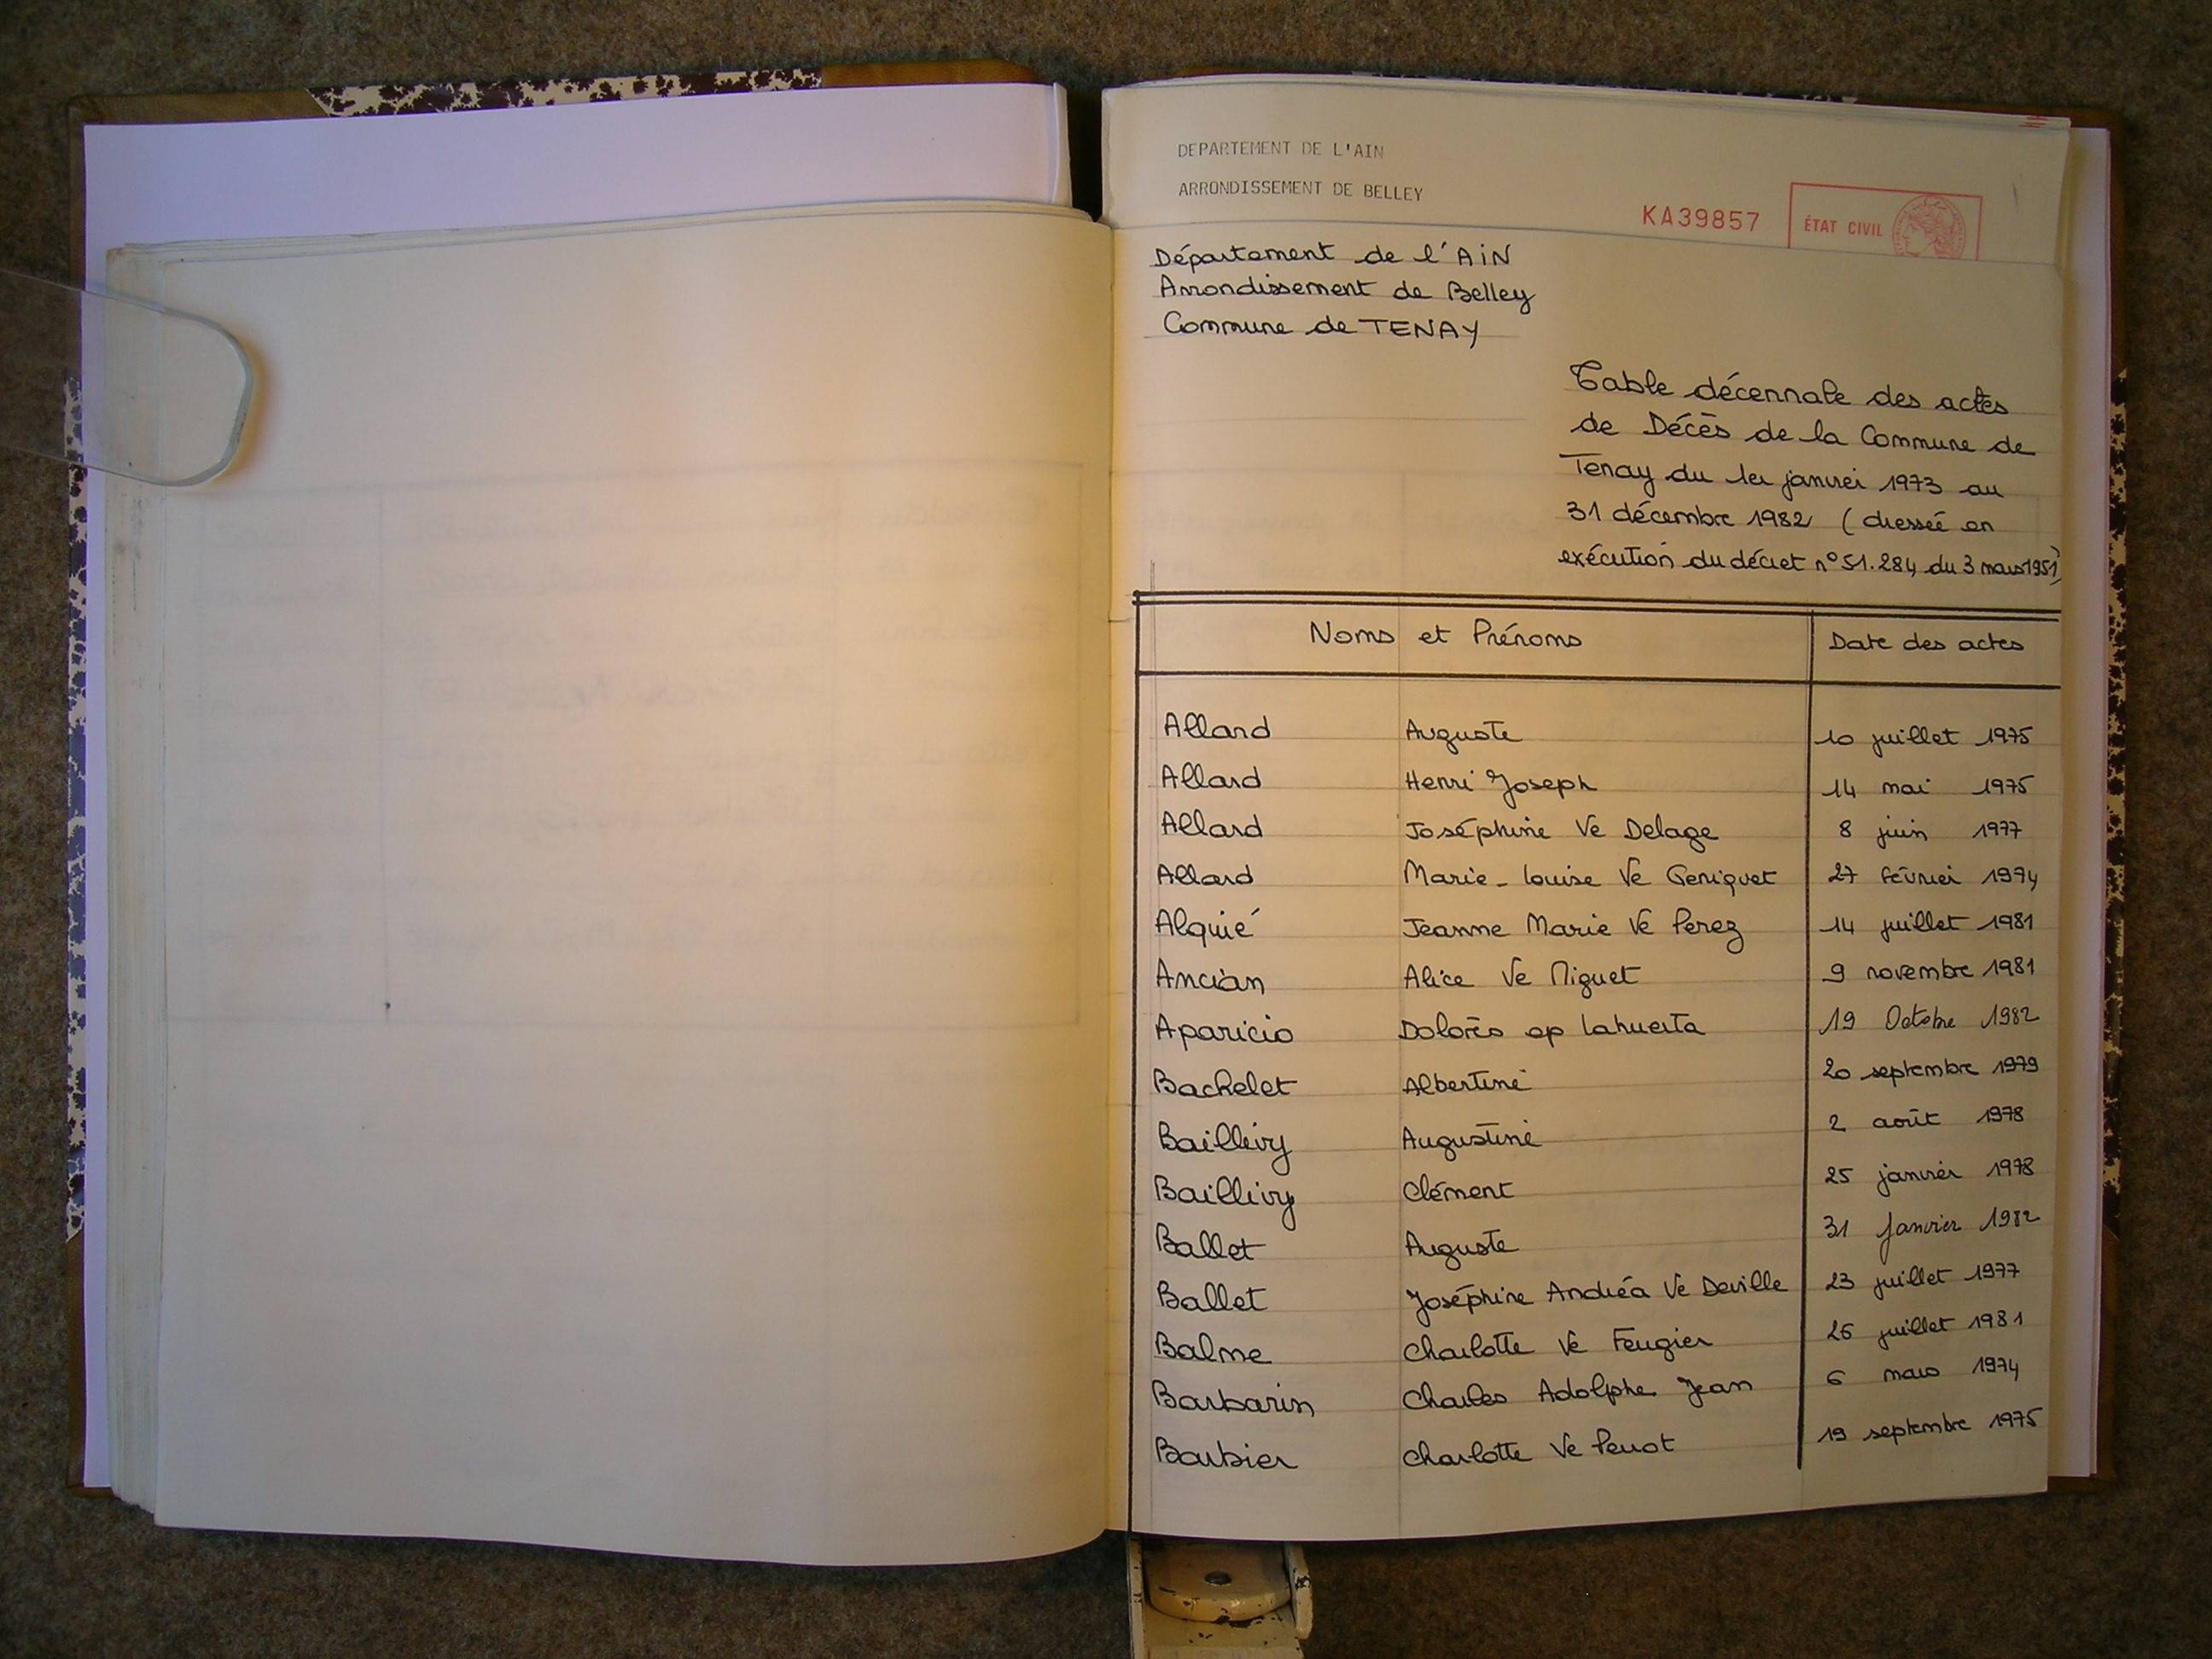 DEPARTEMENT DE L'AIN
ARRONDISSEMENT DE BELLEY
KA39857
ÉTAT CIVIL
Département de l'AIN
Arrondissement de Belley
Commune de TENAY
Table décennale des actes
de Décès de la Commune de
Tenay du 1er janvier 1973 au
31 décembre 1982 (dressée en
exécution du décret n° 51.284 du 3 mars 1951)
Noms et Prénoms Date des actes
Allard Auguste 10 juillet 1975
Allard Henri Joseph 14 mai 1975
Allard Joséphine Ve Delage 8 juin 1977
Allard Marie-Louise Ve Geniquet 27 février 1974
Alquié Jeanne Marie Ve Perez 14 juillet 1981
Ancian Alice Ve Miguet 9 novembre 1981
Aparicio Dolorès ep Lahuerta 19 Octobre 1982
Bachelet Albertine 20 septembre 1979
Baillivy Augustine 2 août 1978
Baillivy Clément 25 janvier 1978
Ballet Auguste 31 Janvier 1982
Ballet Joséphine Andréa Ve Deville 23 juillet 1977
Balme Charlotte Ve Feugier 26 juillet 1981
Barbarin Charles Adolphe Jean 6 mars 1974
Barbier Charlotte Ve Perrot 19 septembre 1975